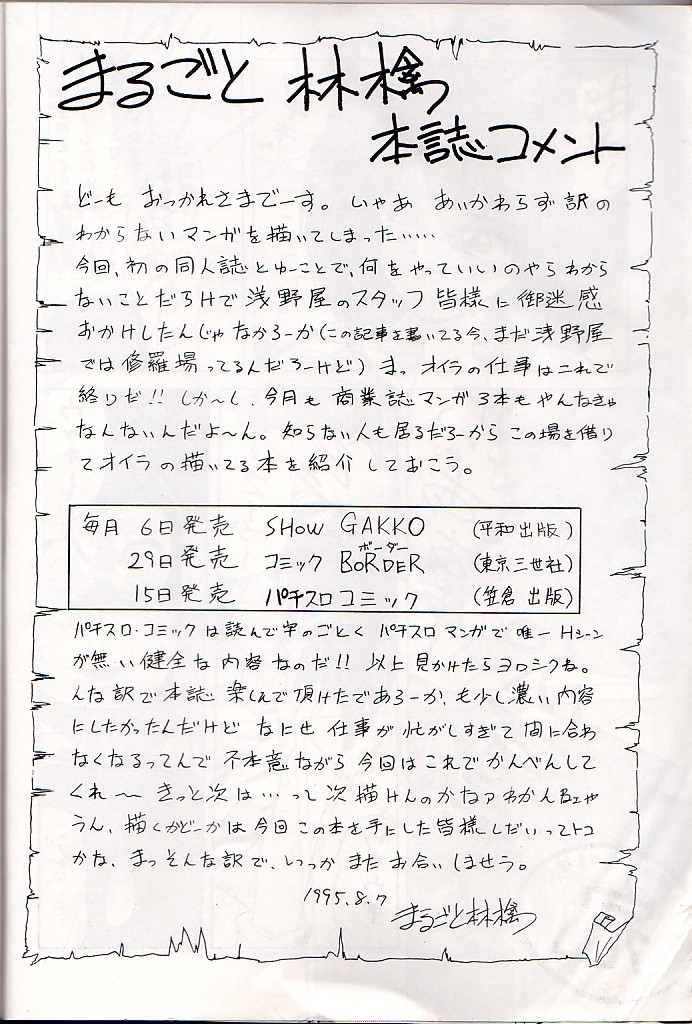 まるごと 林檎
本誌コメント
どーも おつかれさまでーす。いやあ あいかわらず訳の
わからないマンガを描いてしまった……
今回、初の同人誌とゆーことで、何をやっていいのやらわから
ないことだらけで浅野屋のスタッフ皆様に御迷惑
おかけしたんじゃなかろーか(この記事を書いてる今、まだ浅野屋
では修羅場ってるんだろーけど)まっ オイラの仕事はこれで
終りだ!! しか〜し、今月も商業誌マンガ3本もやんなきゃ
なんないんだよ〜ん。知らない人も居るだろーからこの場を借り
てオイラの描いてる本を紹介しておこう。
毎月 6日発売 SHOW GAKKO (平和出版)
29日発売 コミック BORDER ボーダー (東京三世社)
15日発売 パチスロコミック (笠倉出版)
パチスロ・コミックは読んで字のごとくパチスロマンガで唯一Hシーン
が無い健全な内容なのだ!! 以上見かけたらヨロシクね。
んな訳で本誌楽しんで頂けたであろーか、も少し濃い内容
にしたかったんだけど なにせ仕事が忙がしすぎて間に合わ
なくなるってんで不本意ながら今回はこれでかんべんして
くれ〜 きっと次は…って次描けんのかなァわかん
うん、描くかどーかは今回この本を手にした皆様しだいってトコ
かな、まっそんな訳で、いつかまたお会いしませう。
1995.8.7
まるごと林檎